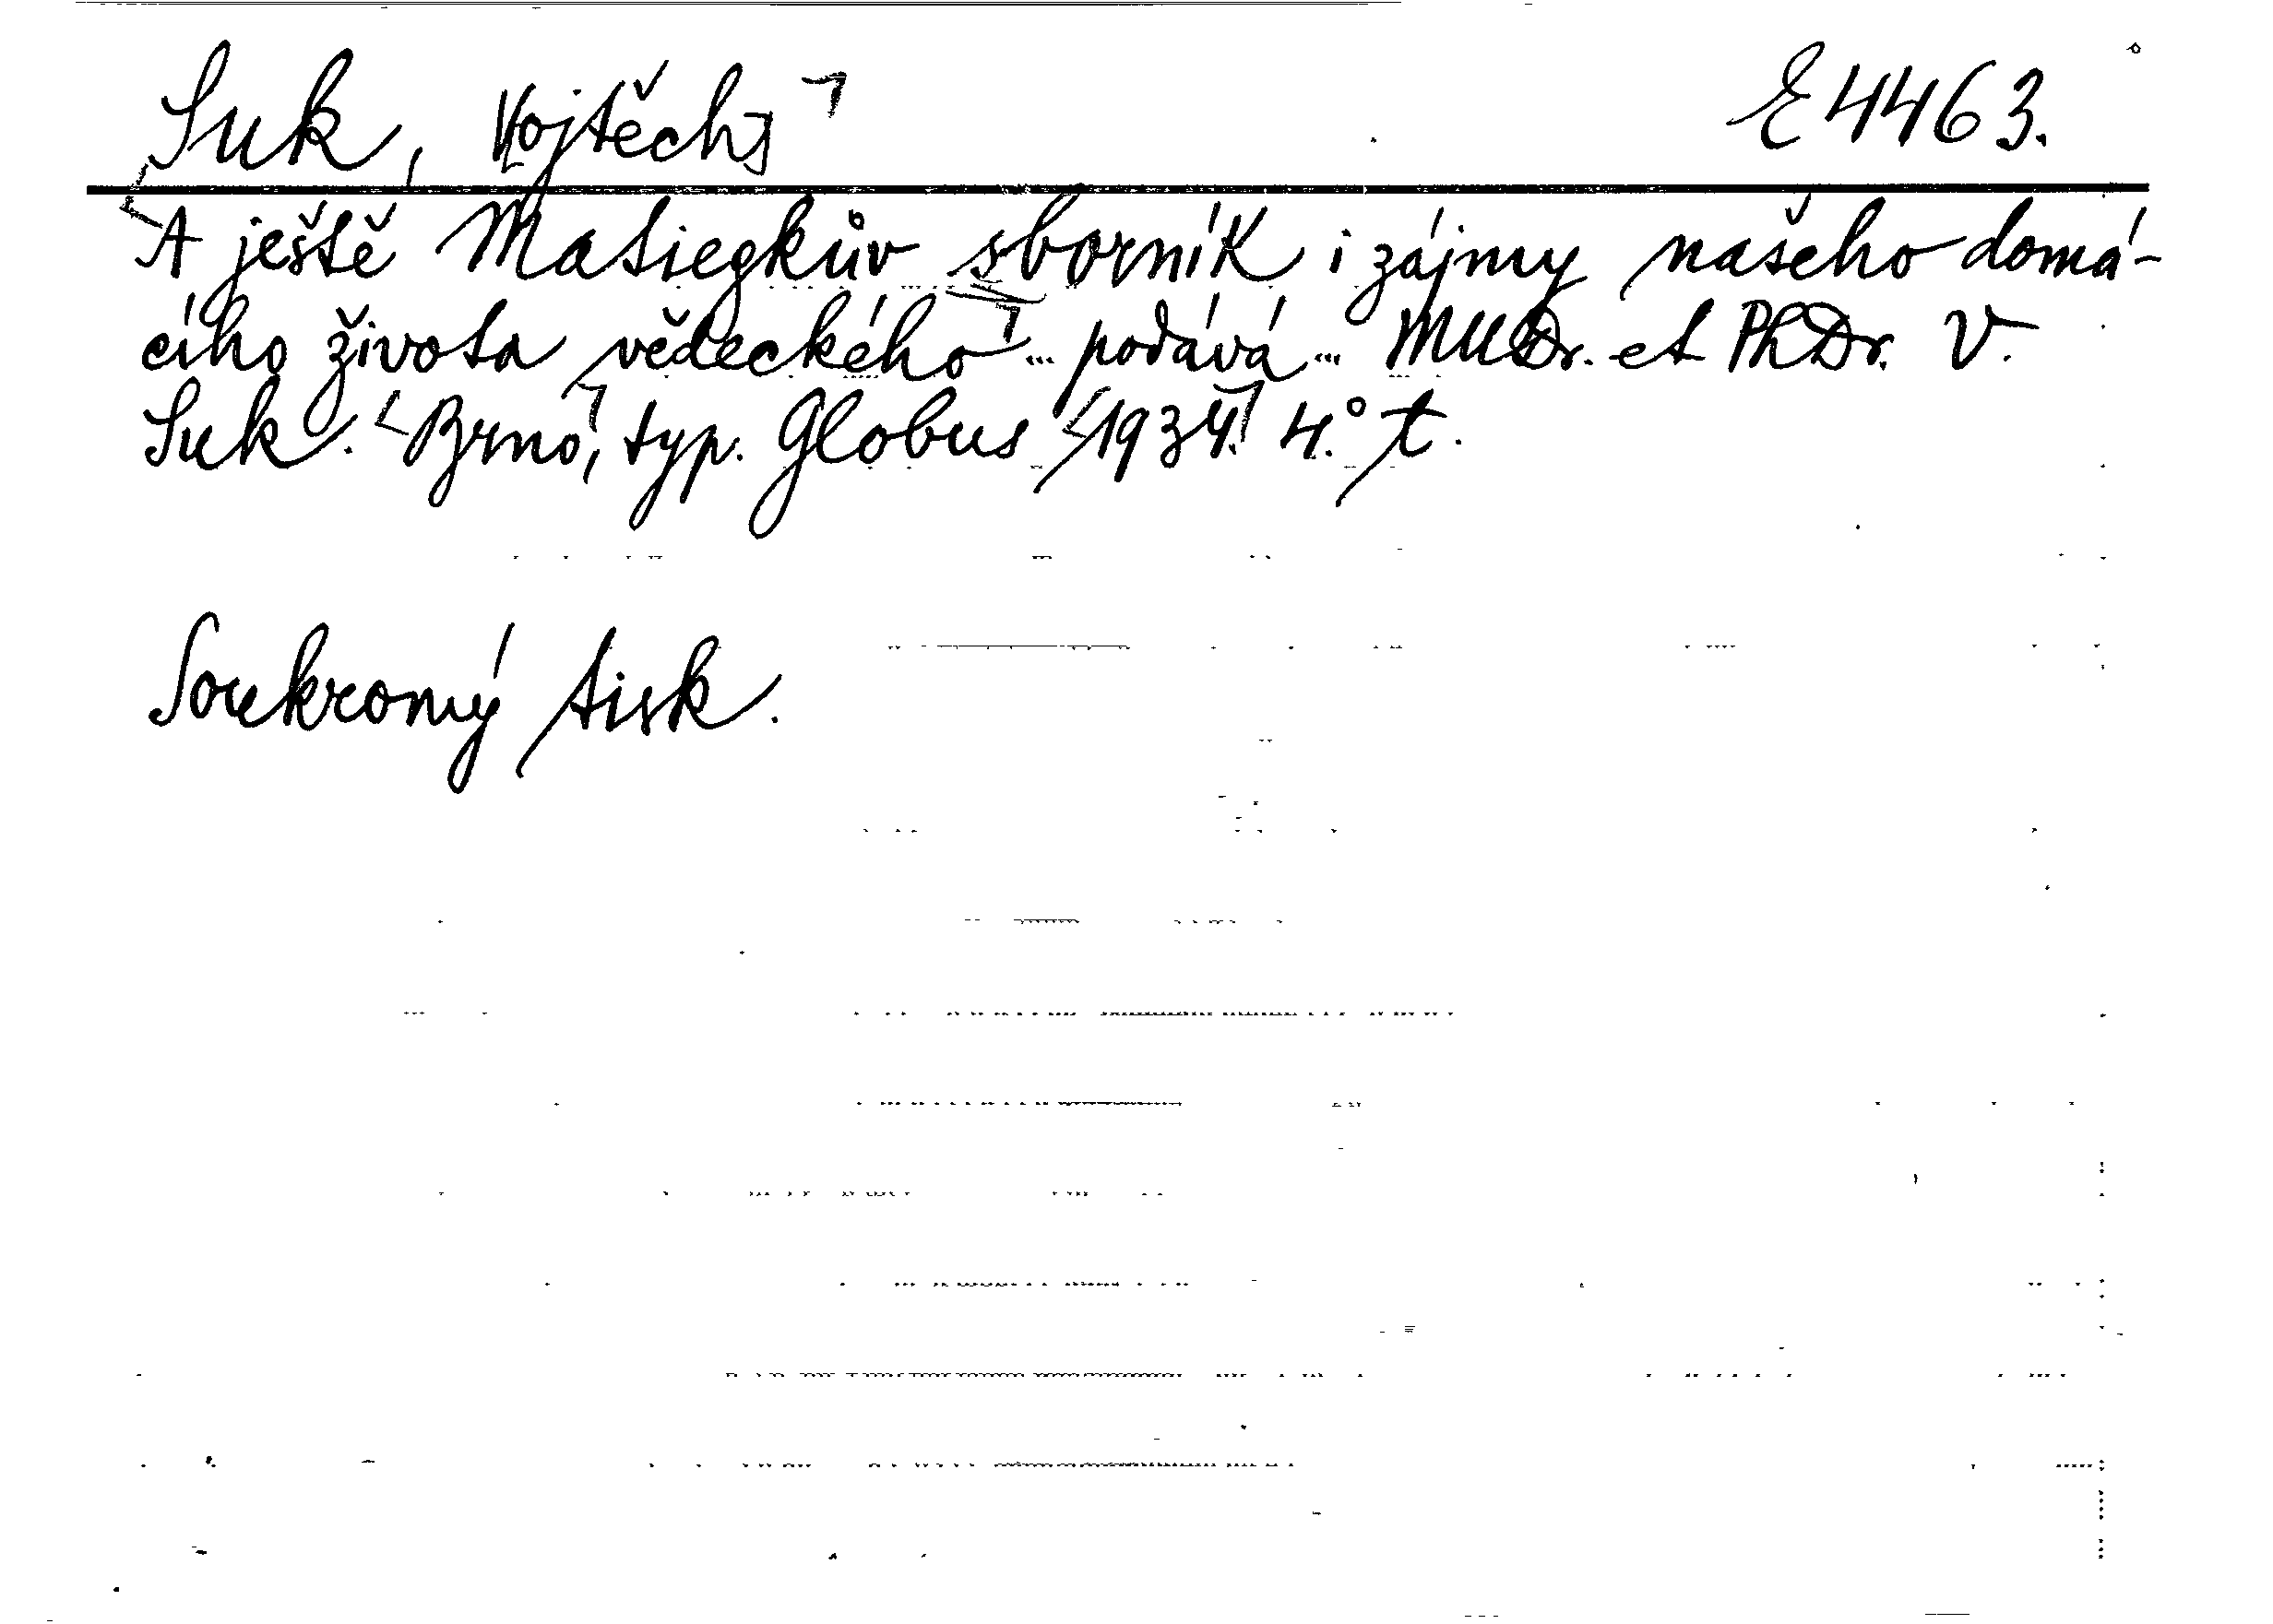 Suk, V[ojtěch]
E 4463.
A ještě Matiegkův sborník i zájmy našeho domá-
cího života vědeckého ... podává ... MUDr. et PhDr. V.
Suk. Brno, typ. Globus 1934. 4.° t.
Soukromý tisk.